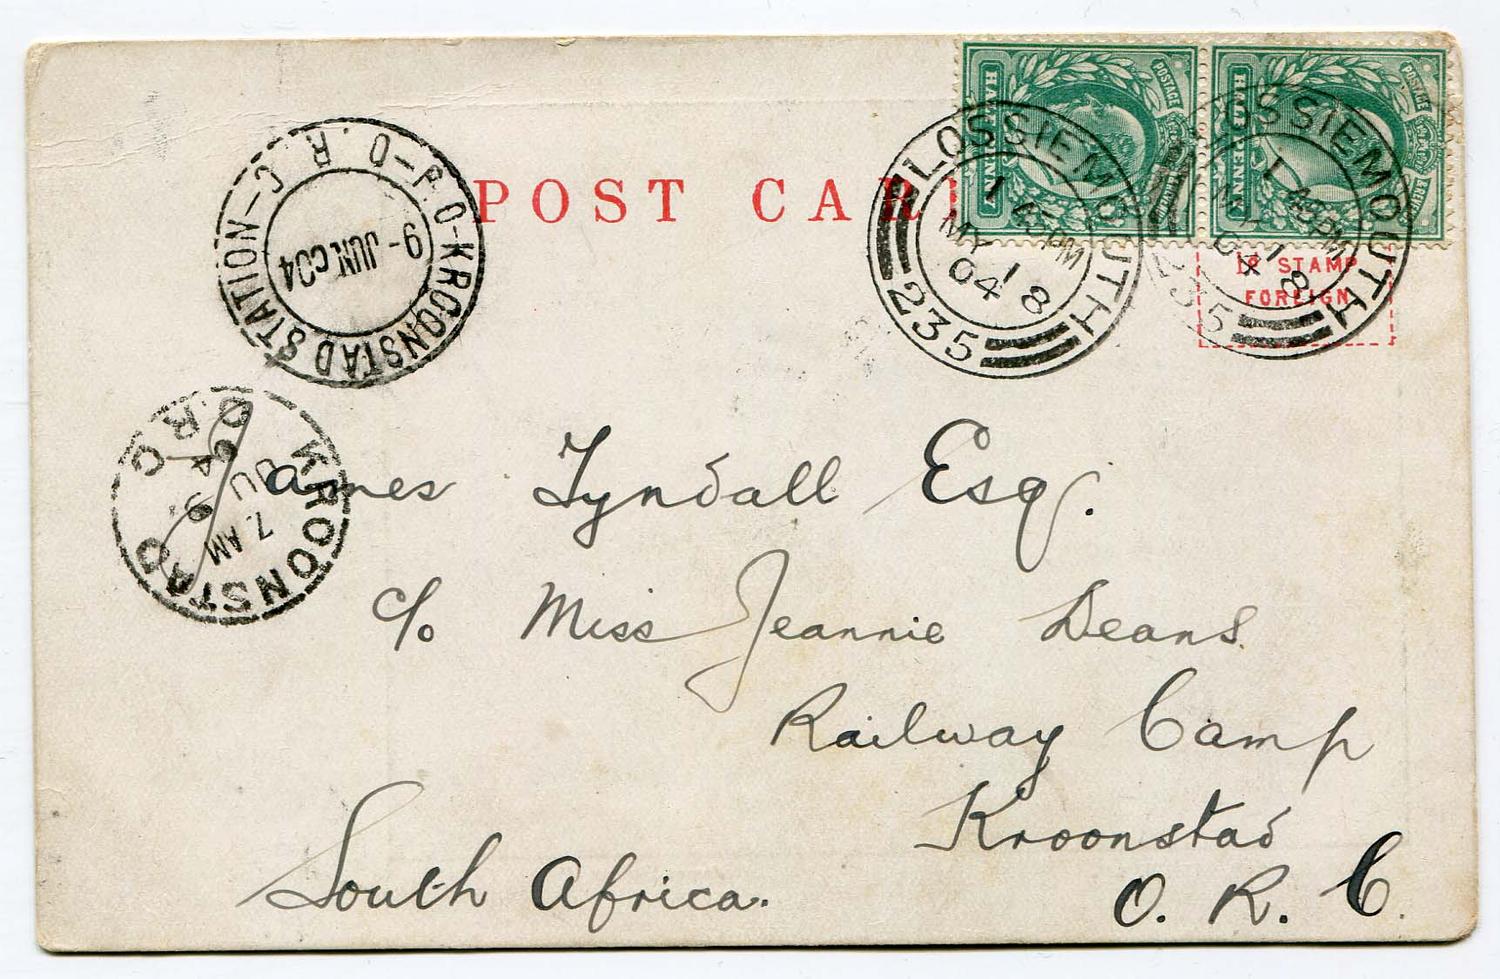 POST CARD
HALFPENNY
POSTAGE
HALFPENNY
POSTAGE
& REVENUE
LOSSIEMOUTH
1 45 PM
MY 18
04
235
LOSSIEMOUTH
1 45 PM
MY 18
04
235
1D STAMP
FOREIGN
P.O-KROONSTAD STATION-O.R.C.
9-JUN.04
KROONSTAD
O.R.C
7. AM
JU 9
04
James Tyndall Esq.
c/o Miss Jeannie Deans
Railway Camp
Kroonstad
South Africa. O. R. C.